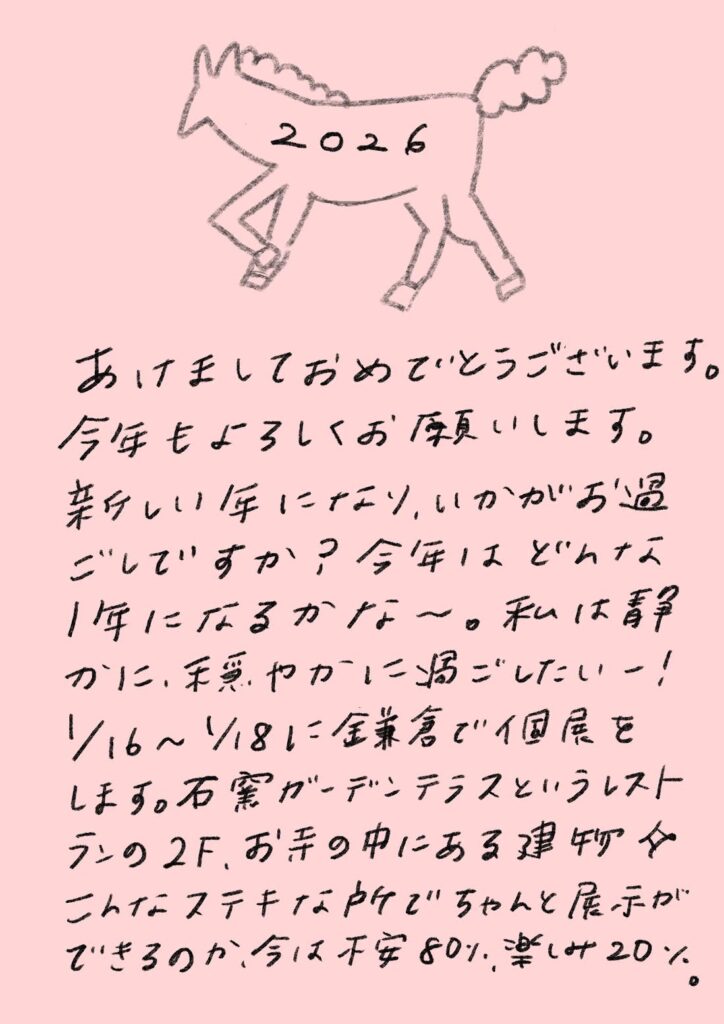 2026
あけましておめでとうございます。
今年もよろしくお願いします。
新しい年になり、いかがお過
ごしですか？今年はどんな
1年になるかな〜。私は静
かに、穏やかに過ごしたいー！
1/16〜1/18に鎌倉で個展を
します。石窯ガーデンテラスというレスト
ランの2F、お寺の中にある建物☆
こんなステキな所でちゃんと展示が
できるのか、今は不安80%、楽しみ20%。